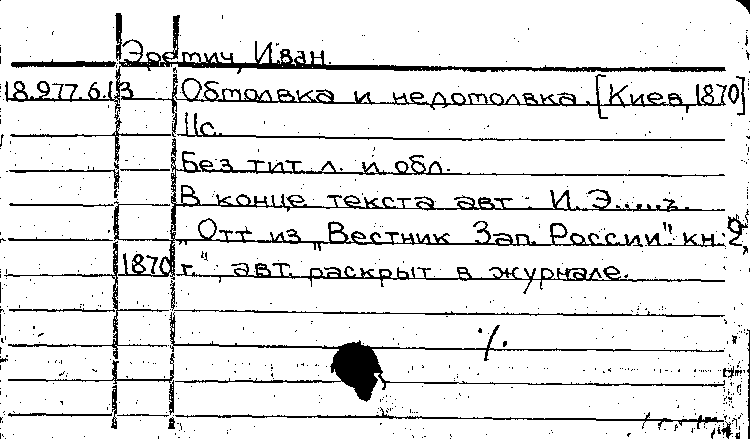 Эретич, Иван.
18.977.6.13 Обмолвка и недомолвка. [Киев, 1870]
11с.
Без тит. л. и обл.
В конце текста авт.: И. Э.....ъ.
"Отт. из "Вестник Зап. России". кн. 2,
1870 г.", авт. раскрыт в журнале.
·/.